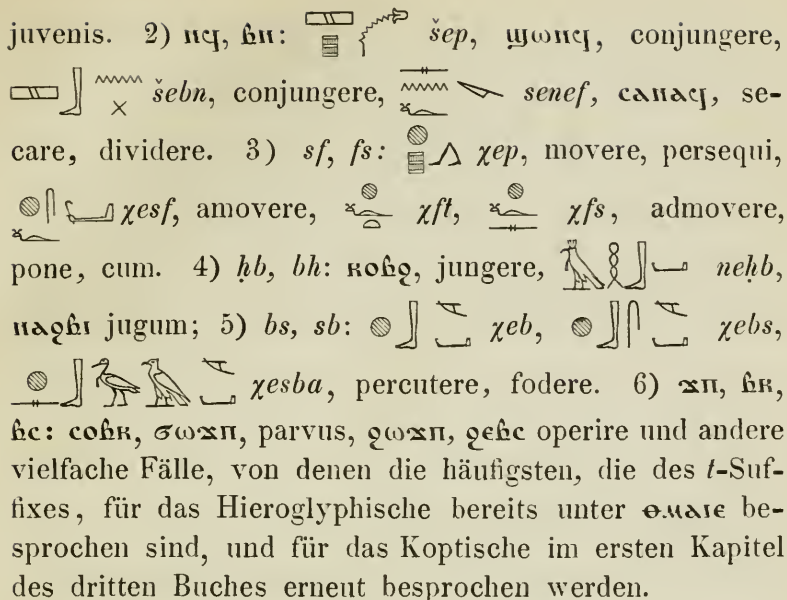 juvenis. 2) ⲛϥ, ⲃⲛ: 𓈙𓊪 šep, ϣⲱⲛϥ, conjungere,
𓈙𓃀𓈖𓏴 šebn, conjungere, 𓊃𓈖𓆑𓌪 senef, ⲥⲁⲛⲁϥ, se-
care, dividere. 3) sf, fs: 𓐍𓊪𓂻 χep, movere, persequi,
𓐍𓋴𓆑𓂝 χesf, amovere, 𓐍𓆑𓏏 χft, 𓐍𓆑𓊃 χfs, admovere,
pone, cum. 4) ḥb, bh: ⲕⲟⲃϩ, jungere, 𓅘𓎛𓃀𓂝 neḥb,
ⲛⲁϩⲃⲓ jugum; 5) bs, sb: 𓐍𓃀 χeb, 𓐍𓃀𓋴 χebs,
𓐍𓊃𓃀 χesba, percutere, fodere. 6) ϫⲡ, ⲃⲕ,
ⲃⲥ: ⲥⲟⲃⲕ, ϭⲱϫⲡ, parvus, ϩⲱϫⲡ, ϩⲉⲃⲥ operire und andere
vielfache Fälle, von denen die häufigsten, die des t-Suf-
fixes, für das Hieroglyphische bereits unter ⲑⲙⲁⲓⲉ be-
sprochen sind, und für das Koptische im ersten Kapitel
des dritten Buches erneut besprochen werden.